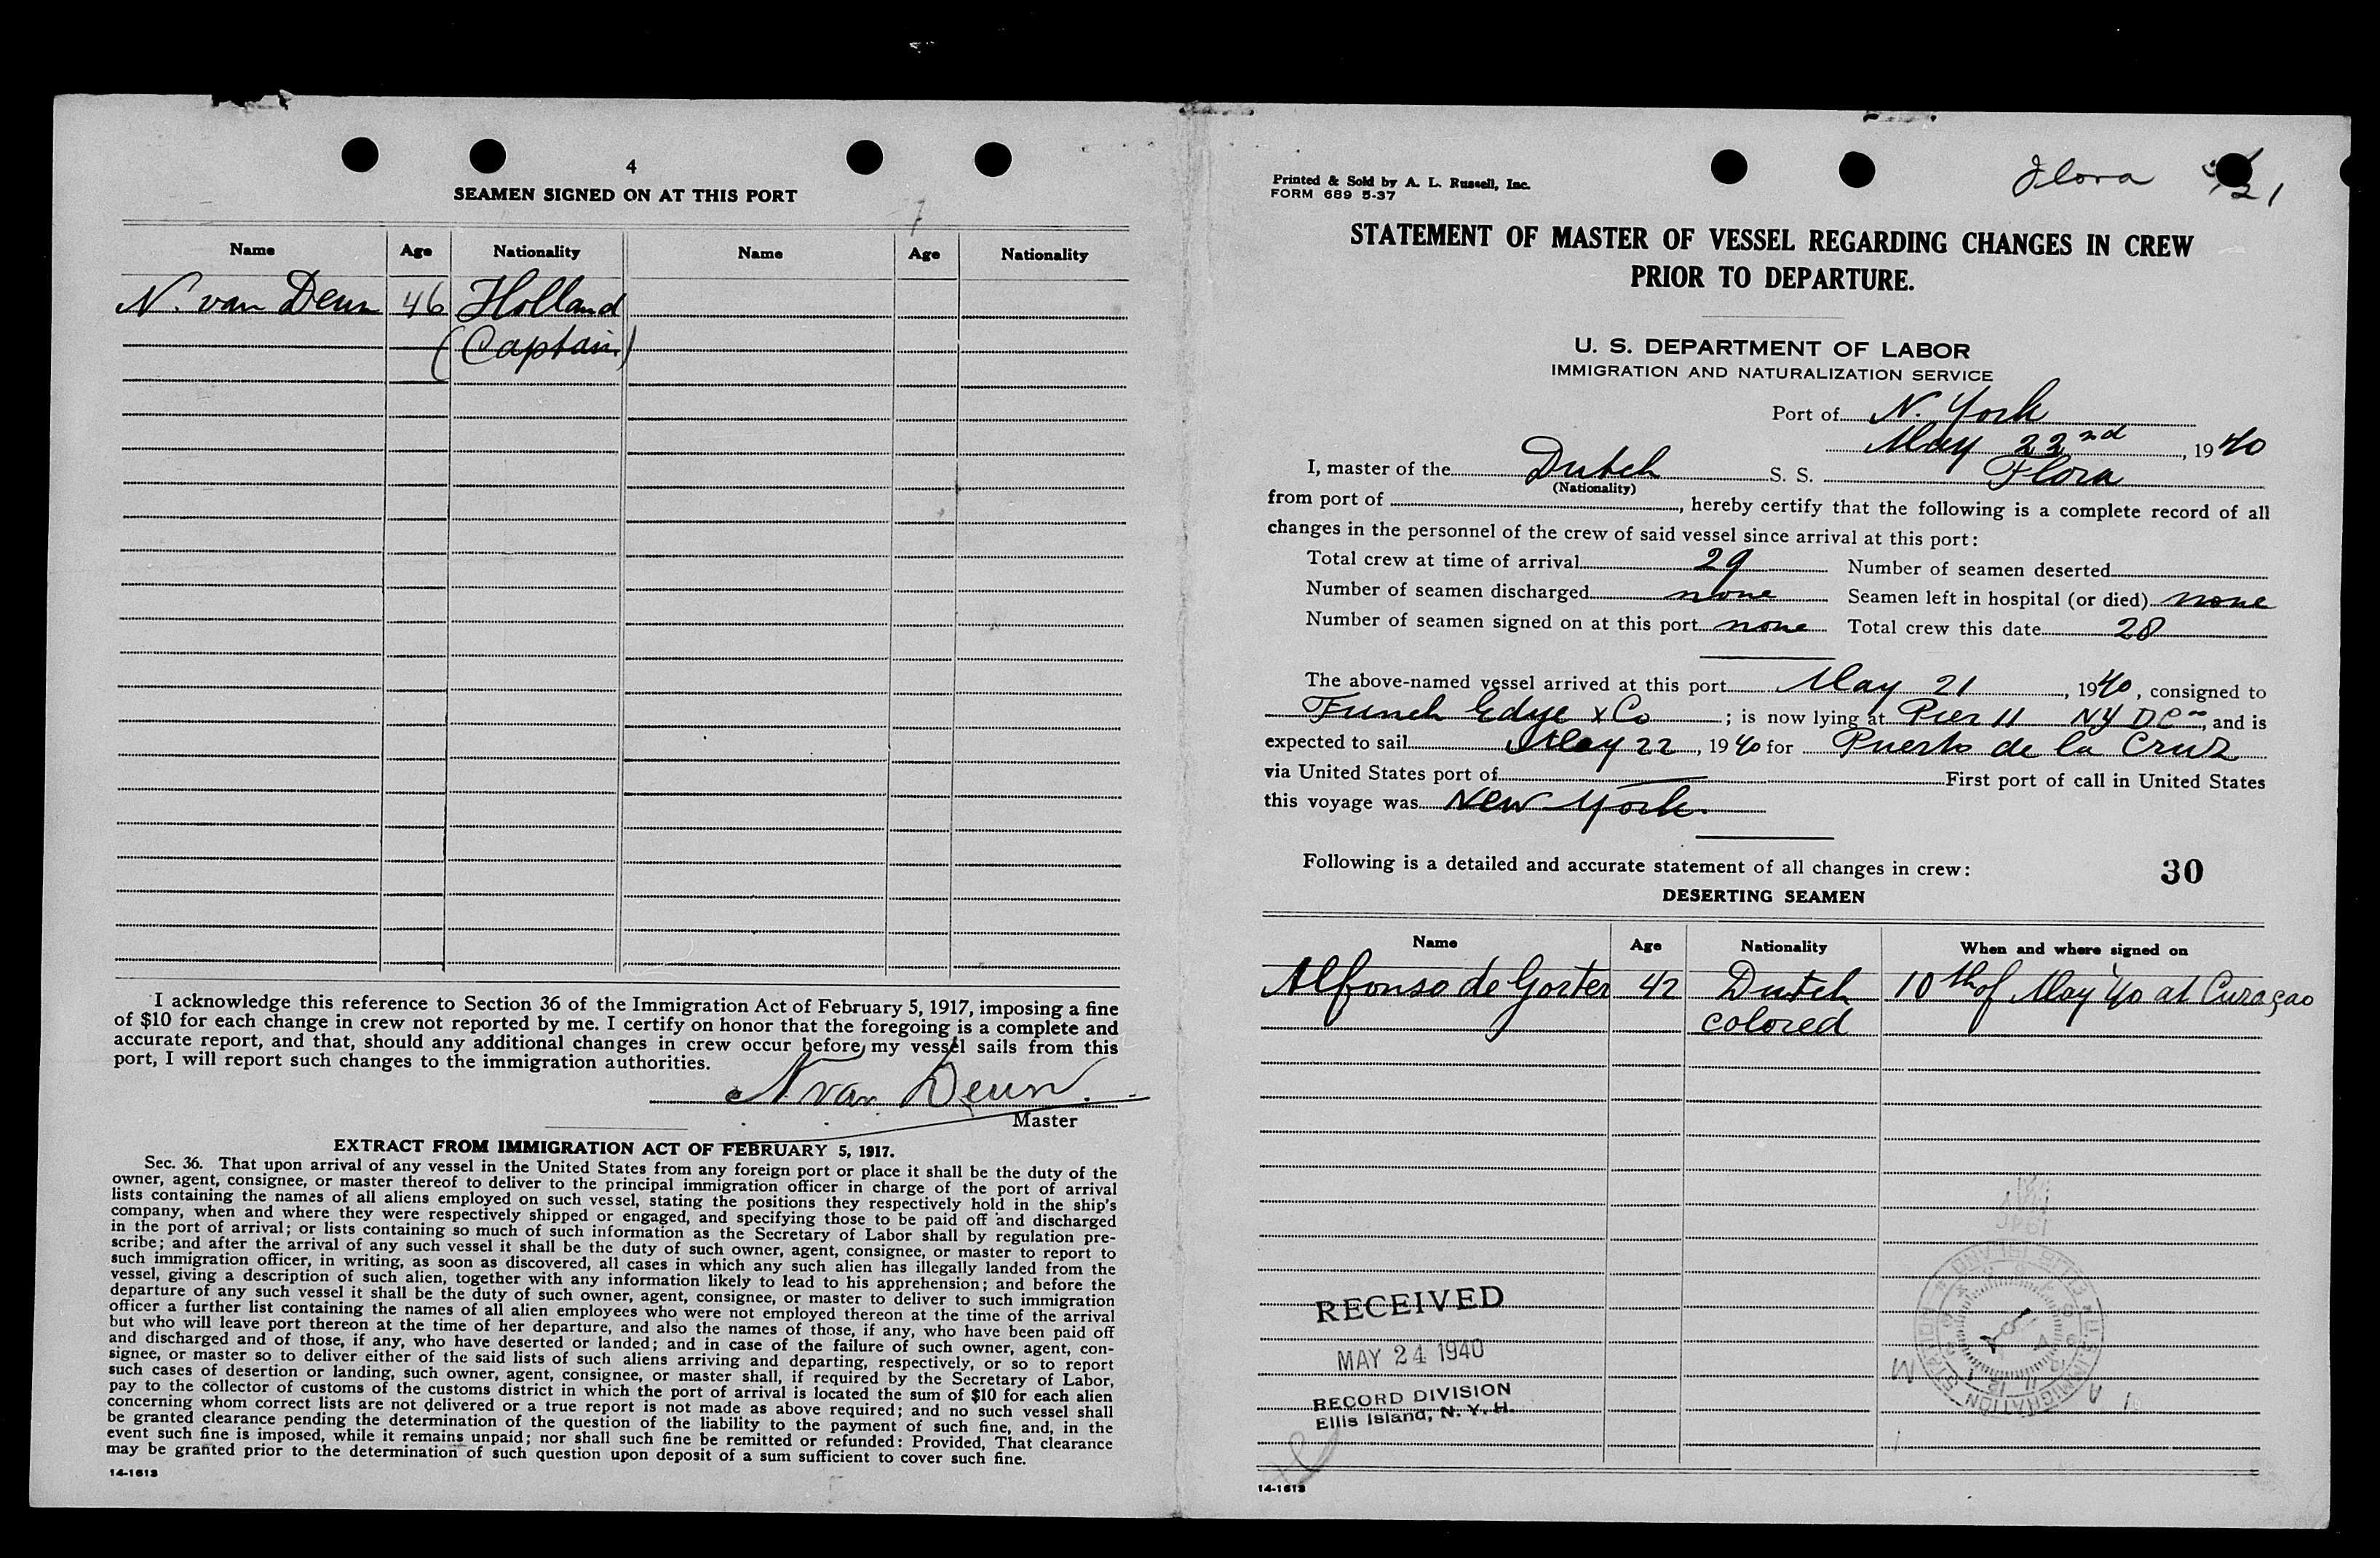 4
SEAMEN SIGNED ON AT THIS PORT
Name Age Nationality Name Age Nationality
N. van Deun 46 Holland
(Captain)
I acknowledge this reference to Section 36 of the Immigration Act of February 5, 1917, imposing a fine
of $10 for each change in crew not reported by me. I certify on honor that the foregoing is a complete and
accurate report, and that, should any additional changes in crew occur before my vessel sails from this
port, I will report such changes to the immigration authorities.
N. van Deun.
Master
EXTRACT FROM IMMIGRATION ACT OF FEBRUARY 5, 1917.
Sec. 36. That upon arrival of any vessel in the United States from any foreign port or place it shall be the duty of the
owner, agent, consignee, or master thereof to deliver to the principal immigration officer in charge of the port of arrival
lists containing the names of all aliens employed on such vessel, stating the positions they respectively hold in the ship's
company, when and where they were respectively shipped or engaged, and specifying those to be paid off and discharged
in the port of arrival; or lists containing so much of such information as the Secretary of Labor shall by regulation pre-
scribe; and after the arrival of any such vessel it shall be the duty of such owner, agent, consignee, or master to report to
such immigration officer, in writing, as soon as discovered, all cases in which any such alien has illegally landed from the
vessel, giving a description of such alien, together with any information likely to lead to his apprehension; and before the
departure of any such vessel it shall be the duty of such owner, agent, consignee, or master to deliver to such immigration
officer a further list containing the names of all alien employees who were not employed thereon at the time of the arrival
but who will leave port thereon at the time of her departure, and also the names of those, if any, who have been paid off
and discharged and of those, if any, who have deserted or landed; and in case of the failure of such owner, agent, con-
signee, or master so to deliver either of the said lists of such aliens arriving and departing, respectively, or so to report
such cases of desertion or landing, such owner, agent, consignee, or master shall, if required by the Secretary of Labor,
pay to the collector of customs of the customs district in which the port of arrival is located the sum of $10 for each alien
concerning whom correct lists are not delivered or a true report is not made as above required; and no such vessel shall
be granted clearance pending the determination of the question of the liability to the payment of such fine, and, in the
event such fine is imposed, while it remains unpaid; nor shall such fine be remitted or refunded: Provided, That clearance
may be granted prior to the determination of such question upon deposit of a sum sufficient to cover such fine.
14-1613
Printed & Sold by A. L. Russell, Inc.
FORM 689 5-37
Flora 21
STATEMENT OF MASTER OF VESSEL REGARDING CHANGES IN CREW
PRIOR TO DEPARTURE.
U. S. DEPARTMENT OF LABOR
IMMIGRATION AND NATURALIZATION SERVICE
Port of N. York
May 22nd, 1940
I, master of the Dutch S. S. Flora
(Nationality)
from port of , hereby certify that the following is a complete record of all
changes in the personnel of the crew of said vessel since arrival at this port:
Total crew at time of arrival 29 Number of seamen deserted
Number of seamen discharged none Seamen left in hospital (or died) none
Number of seamen signed on at this port none Total crew this date 28
The above-named vessel arrived at this port May 21, 1940, consigned to
Funch Edye & Co; is now lying at Pier 11 NY, and is
expected to sail May 22, 1940 for Puerto de la Cruz
via United States port of First port of call in United States
this voyage was New York.
Following is a detailed and accurate statement of all changes in crew:
30
DESERTING SEAMEN
Name Age Nationality When and where signed on
Alfonso de Gorter 42 Dutch 10th of May '40 at Curaçao
colored
RECEIVED
MAY 24 1940
RECORD DIVISION
Ellis Island, N. Y. H.
14-1613